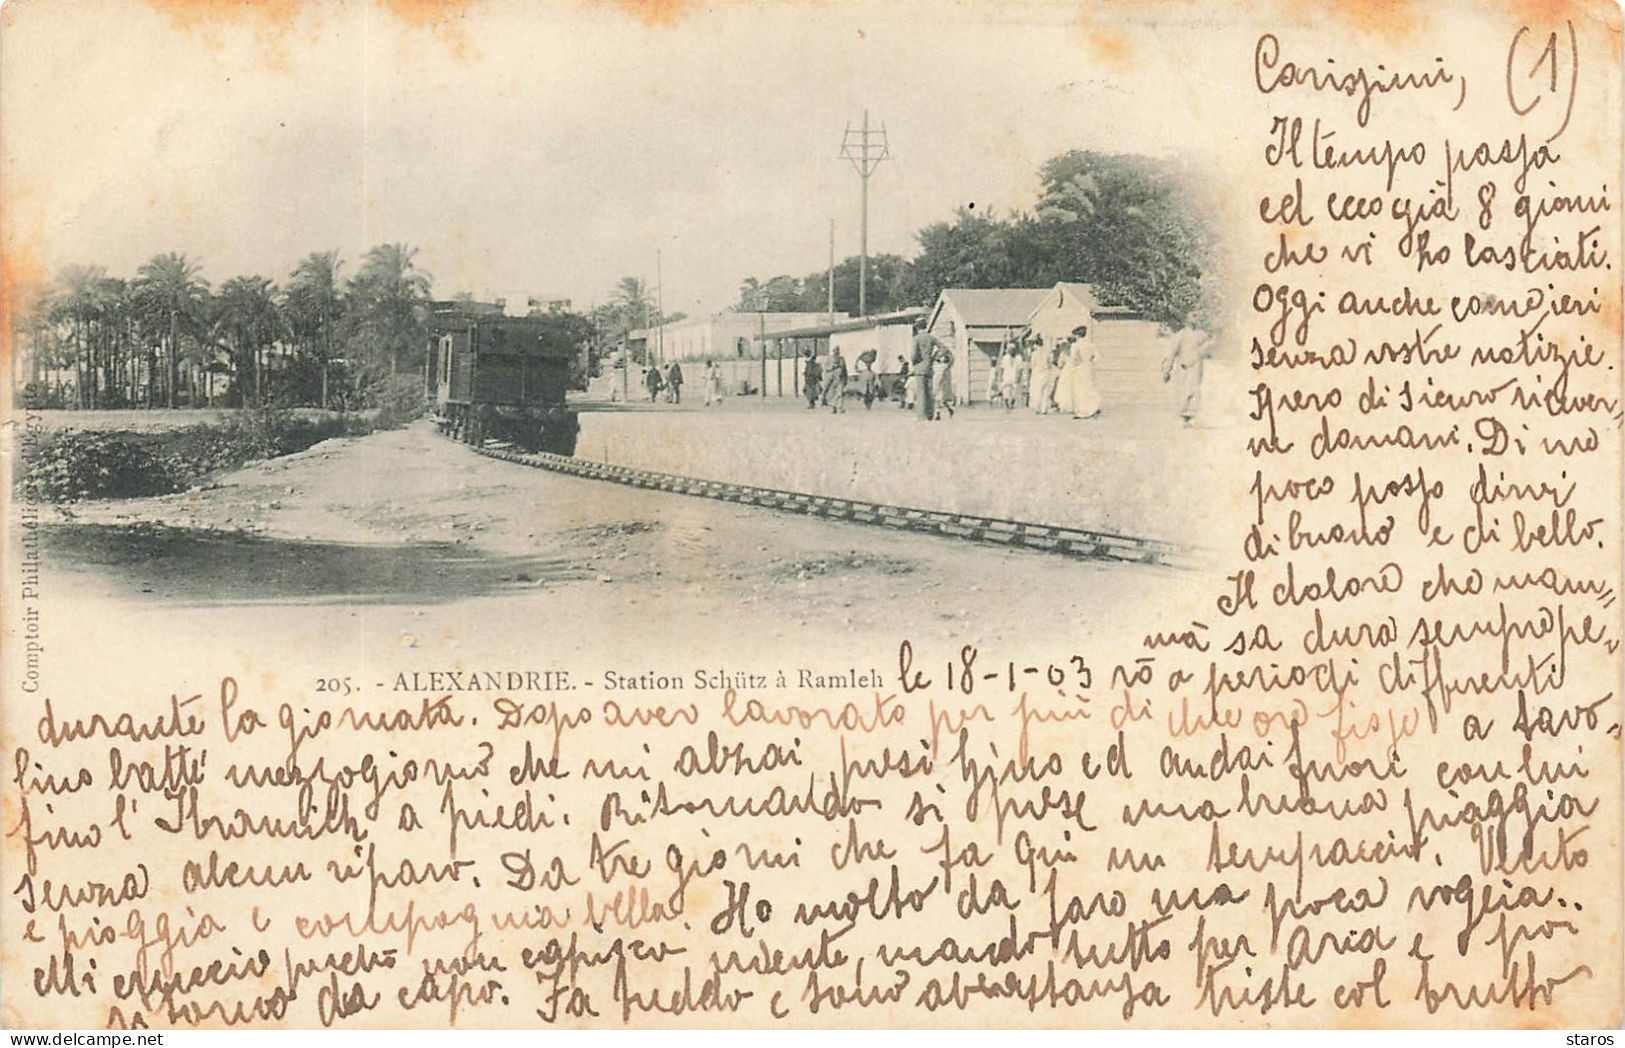 Carissimi, (1)
Il tempo passa
ed ecco già 8 giorni
che vi ho lasciati.
Oggi anche come ieri
senza vostre notizie.
Spero di sicuro ricever-
ne domani. Di me
poco posso dirvi
di buono e di bello.
Il dolore che mam=
mà sa dura sempre pe-
rò a periodi differenti
205. - ALEXANDRIE. - Station Schütz à Ramleh
le 18-1-03
Comptoir Philathélique d'Egypte
durante la giornata. Dopo aver lavorato per più di due ore fisse a tavo-
lino battè mezzogiorno che mi alzai, presi Gino ed andai fuori con lui
fino l'Ibramich a piedi. Ritornando si prese una buona pioggia
senza alcun riparo. Da tre giorni che fa qui un tempaccio. Vento
e pioggia e compagnia bella. Ho molto da fare ma poca voglia..
Mi cruccio perchè non capisco niente, mando tutto per aria e poi
ritorno da capo. Fa freddo e sono abbastanza triste col brutto
staros